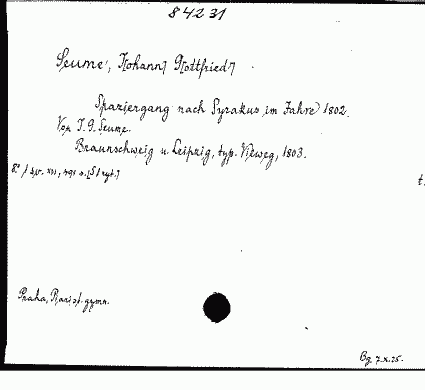 84231
Seume, J[ohann] G[ottfried]
Spaziergang nach Syrakus im Jahre 1802.
Von J. G. Seume.
Braunschweig u. Leipzig, typ. Vieweg, 1803.
8°
Praha, gymn.